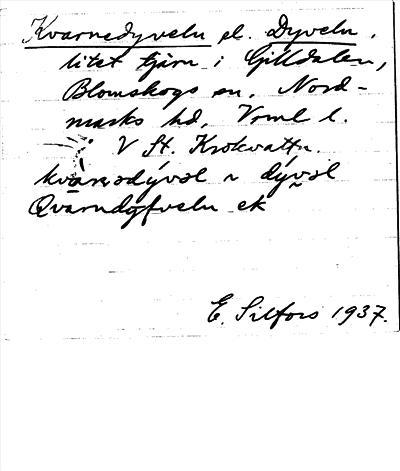 Kvarnedyveln el. Dyveln.
litet tjärn i Gilldalen,
Blomskogs sn. Nord-
marks hd, Vrml l.
V St. Krokvattn.
kvarnedývəl ~ dývəl
Qvarndyfveln ek
E. Silfors 1937.